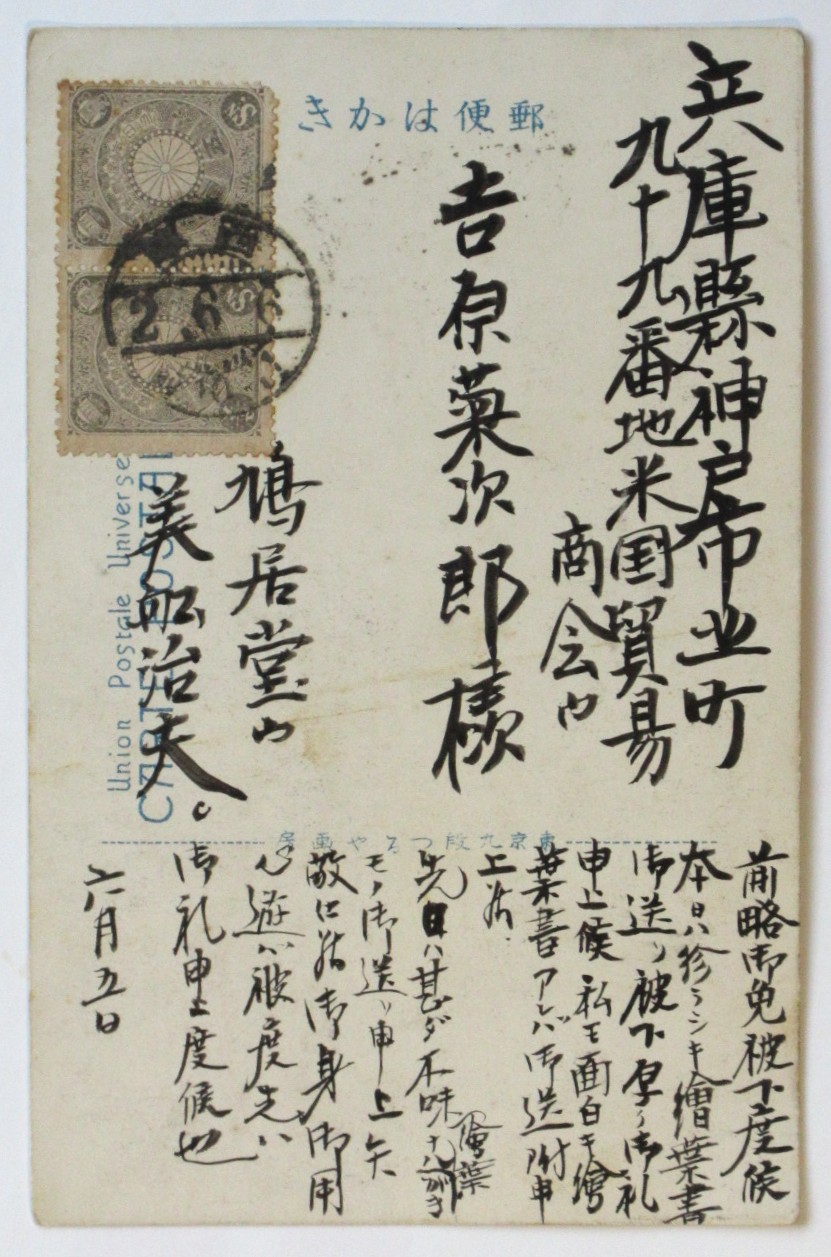 郵便はかき
兵庫縣神戸市
町
九十九番地米国貿易
商会内
吉原菊次郎様
鳩居堂内
美船治夫。
Union Postale Universe
東京九段つるや画房
前略御免被下度候
本日ハ珍ラシキ繪葉書
御送リ被下厚ク御礼
申上候 私モ面白キ繪
葉書アレバ御送附申
上
先日ハ甚ダ不味ナ繪葉がき
モノ御送リ申上矢
御身御用
心遊ハ被度先ハ
御礼申上度候也
六月五日
2.6.6